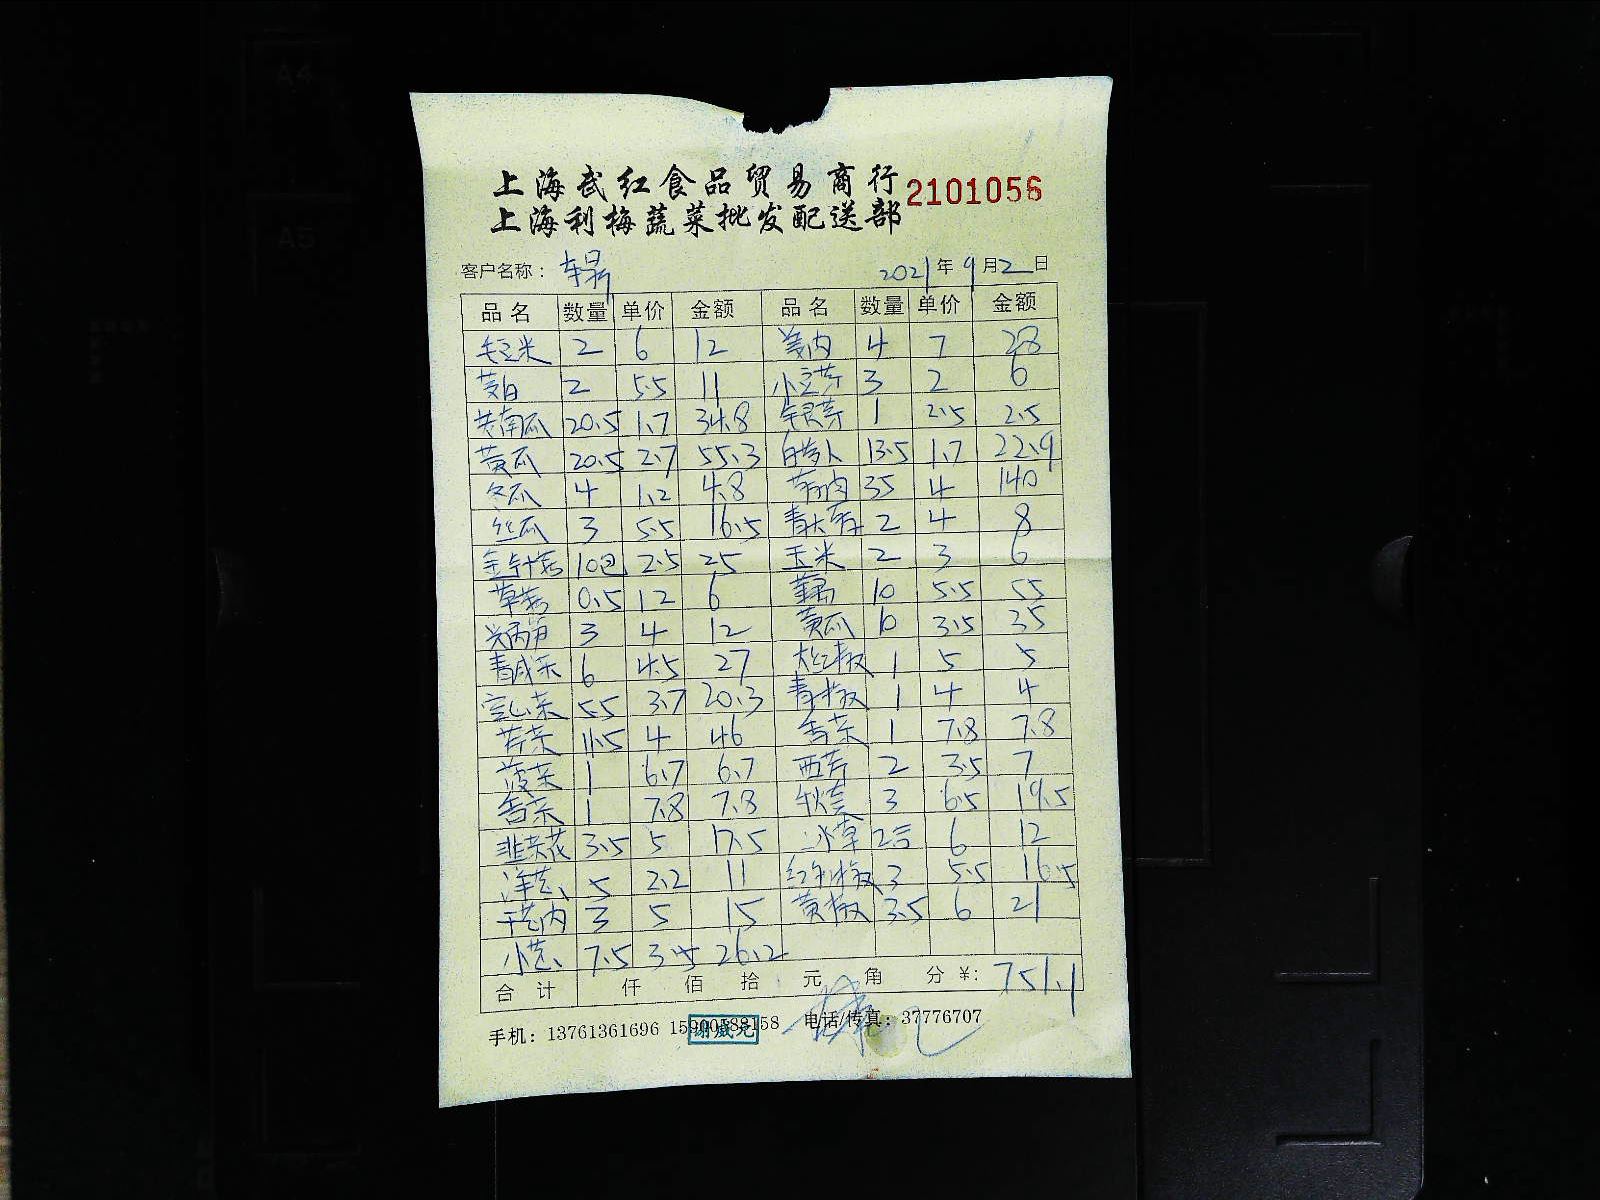 A4
A5
上海武红食品贸易商行
2101056
上海利梅蔬菜批发配送部
客户名称：
2021年9月2日
品名 数量 单价 金额 品名 数量 单价 金额
毛豆米 2 6 12 姜肉 4 7 28
茭白 2 5.5 11 小豆芽 3 2 6
老南瓜 20.5 1.7 34.8 银芽 1 2.5 2.5
黄瓜 20.5 2.7 55.3 白萝卜 13.5 1.7 22.9
冬瓜 4 1.2 4.8 莴肉 35 4 140
丝瓜 3 5.5 16.5 青大蒜 2 4 8
金针菇 10包 2.5 25 玉米 2 3 6
草菇 0.5 12 6 藕 10 5.5 55
3 4 12 黄瓜 10 3.5 35
青咸菜 6 4.5 27 大红椒 1 5 5
空心菜 5.5 3.7 20.3 青椒 1 4 4
芹菜 11.5 4 46 香菜 1 7.8 7.8
菠菜 1 6.7 6.7 西芹 2 3.5 7
香菜 1 7.8 7.8 秋葵 3 6.5 19.5
韭菜花 3.5 5 17.5 冰草 2 6 12
洋葱 5 2.2 11 红尖椒 3 5.5 16.5
干葱肉 3 5 15 黄椒 3.5 6 21
小葱 7.5 3.5 26.2
合计 仟 佰 拾 元 角 分 ¥: 751.1
手机：13761361696 15900588158 电话/传真：37776707
谢威尧